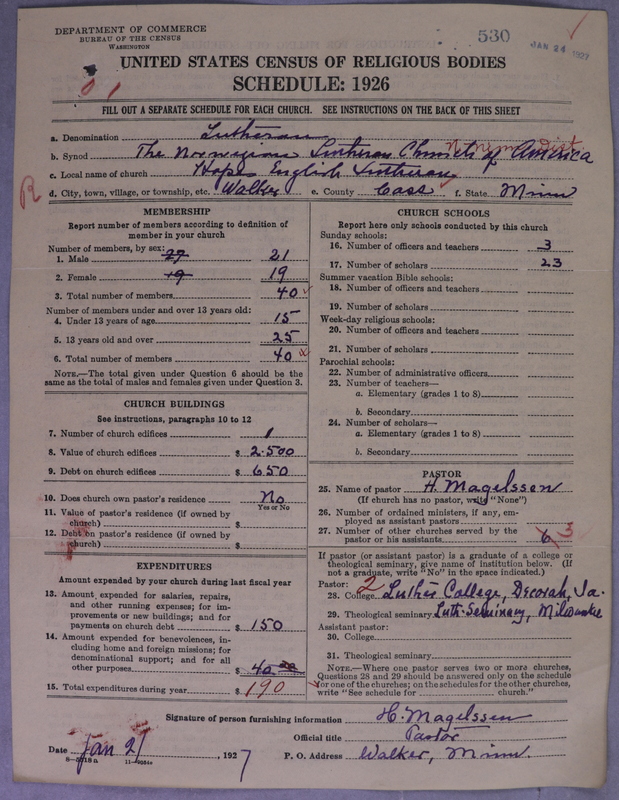 DEPARTMENT OF COMMERCE
BUREAU OF THE CENSUS
WASHINGTON
530
JAN 24 1927
UNITED STATES CENSUS OF RELIGIOUS BODIES
SCHEDULE: 1926
FILL OUT A SEPARATE SCHEDULE FOR EACH CHURCH. SEE INSTRUCTIONS ON THE BACK OF THIS SHEET
a. Denomination Lutheran
b. Synod The Norwegian Lutheran Church of America
c. Local name of church Hope English Lutheran
d. City, town, village, or township, etc. Walker e. County Cass f. State Minn
R
MEMBERSHIP
Report number of members according to definition of
member in your church
Number of members, by sex:
1. Male 27 21
2. Female 19 19
3. Total number of members 40
Number of members under and over 13 years old:
4. Under 13 years of age 15
5. 13 years old and over 25
6. Total number of members 40
NOTE.—The total given under Question 6 should be
same as the total of males and females given under Question 3.
CHURCH BUILDINGS
See instructions, paragraphs 10 to 12
7. Number of church edifices 1
8. Value of church edifices $ 2.500
9. Debt on church edifices $ 650
10. Does church own pastor's residence No
Yes or No
11. Value of pastor's residence (if owned by
church) $
12. Debt on pastor's residence (if owned by
church) $
EXPENDITURES
Amount expended by your church during last fiscal year
13. Amount expended for salaries, repairs,
and other running expenses; for im-
provements or new buildings; and for
payments on church debt $ 150
14. Amount expended for benevolences, in-
cluding home and foreign missions; for
denominational support; and for all
other purposes $ 40 00
15. Total expenditures during year $ 190
CHURCH SCHOOLS
Report here only schools conducted by this church
Sunday schools:
16. Number of officers and teachers 3
17. Number of scholars 23
Summer vacation Bible schools:
18. Number of officers and teachers
19. Number of scholars
Week-day religious schools:
20. Number of officers and teachers
21. Number of scholars
Parochial schools:
22. Number of administrative officers
23. Number of teachers—
a. Elementary (grades 1 to 8)
b. Secondary
24. Number of scholars—
a. Elementary (grades 1 to 8)
b. Secondary
PASTOR
25. Name of pastor H. Magelssen
(If church has no pastor, write "None")
26. Number of ordained ministers, if any, em-
ployed as assistant pastors
27. Number of other churches served by the
pastor or his assistants 6 3
If pastor (or assistant pastor) is a graduate of a college or
theological seminary, give name of institution below. (If
not a graduate, write "No" in the space indicated.)
Pastor: 2
28. College Luther College, Decorah, Ia.
29. Theological seminary Luth. Seminary, Milwaukee
Assistant pastor:
30. College
31. Theological seminary
NOTE.—Where one pastor serves two or more churches,
Questions 28 and 29 should be answered only on the schedule
for one of the churches; on the schedules for the other churches,
write "See schedule for church."
Signature of person furnishing information H. Magelssen
Official title Pastor
Date Jan 21, 1927 P. O. Address Walker, Minn.